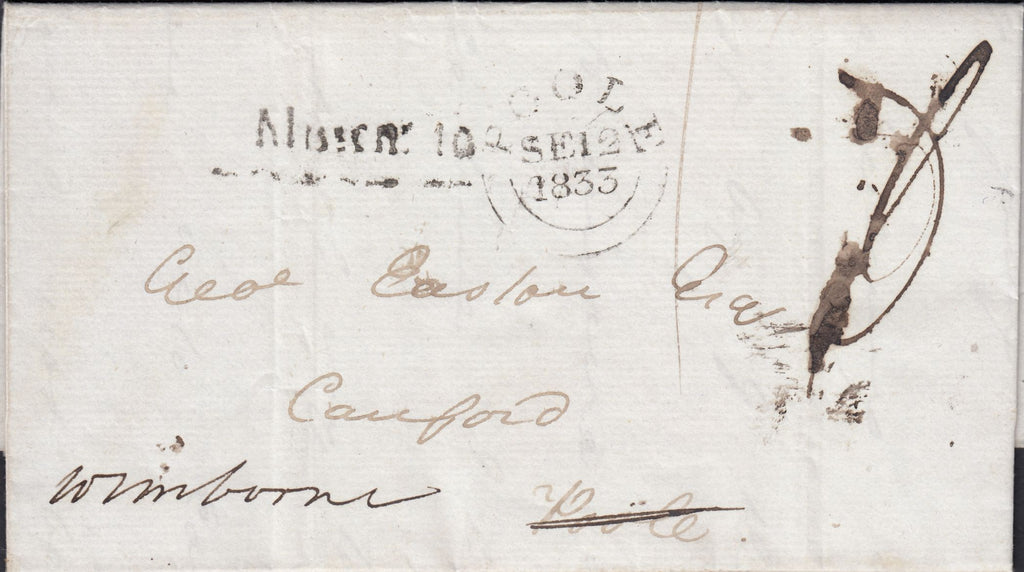 POOLE
SE 12
1833
Geo Easton Esq
Canford
Wimborne
Poole